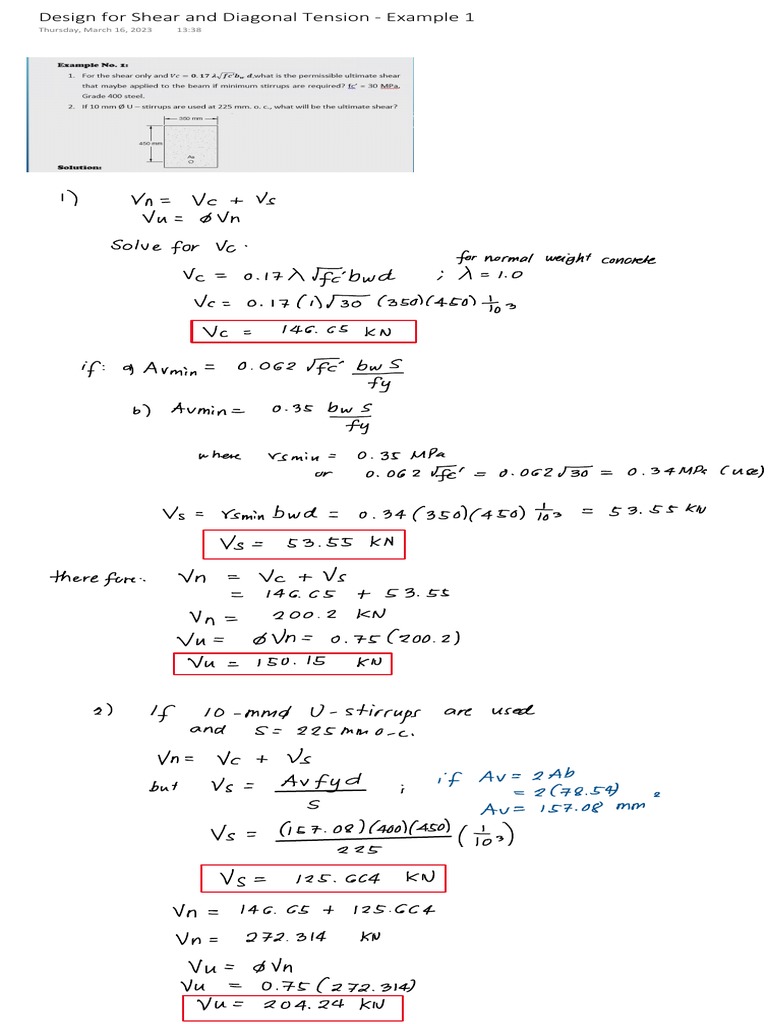 Design for Shear and Diagonal Tension - Example 1
Thursday, March 16, 2023 13:38
Example No. 1:
1. For the shear only and Vc = 0.17 λ√fc' bw d, what is the permissible ultimate shear
that maybe applied to the beam if minimum stirrups are required? fc' = 30 MPa,
Grade 400 steel.
2. If 10 mm Ø U – stirrups are used at 225 mm. o. c., what will be the ultimate shear?
350 mm
450 mm
As
Solution:
1) Vn = Vc + Vs
Vu = ØVn
Solve for Vc.
for normal weight concrete
Vc = 0.17 λ √fc' bwd ; λ = 1.0
Vc = 0.17 (1) √30 (350)(450) 1/10³
Vc = 146.65 KN
if: a) Avmin = 0.062 √fc' bw S / fy
b) Avmin = 0.35 bw S / fy
where rsmin = 0.35 MPa
or 0.062 √fc' = 0.062 √30 = 0.34 MPa (use)
Vs = rsmin bwd = 0.34 (350)(450) 1/10³ = 53.55 KN
Vs = 53.55 KN
therefore: Vn = Vc + Vs
= 146.65 + 53.55
Vn = 200.2 KN
Vu = ØVn = 0.75 (200.2)
Vu = 150.15 KN
2) If 10-mmØ U-stirrups are used
and S = 225 mm o-c.
Vn = Vc + Vs
but Vs = Av fy d / S ; if Av = 2 Ab
= 2 (78.54)
Av = 157.08 mm²
Vs = (157.08)(400)(450) / 225 (1/10³)
Vs = 125.664 KN
Vn = 146.65 + 125.664
Vn = 272.314 KN
Vu = ØVn
Vu = 0.75 (272.314)
Vu = 204.24 KN